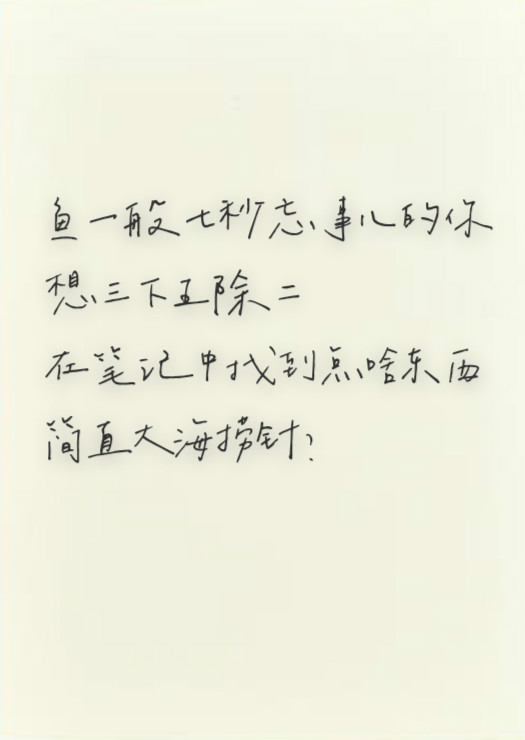 鱼一般七秒忘事儿的你
想三下五除二
在笔记中找到点啥东西
简直大海捞针？